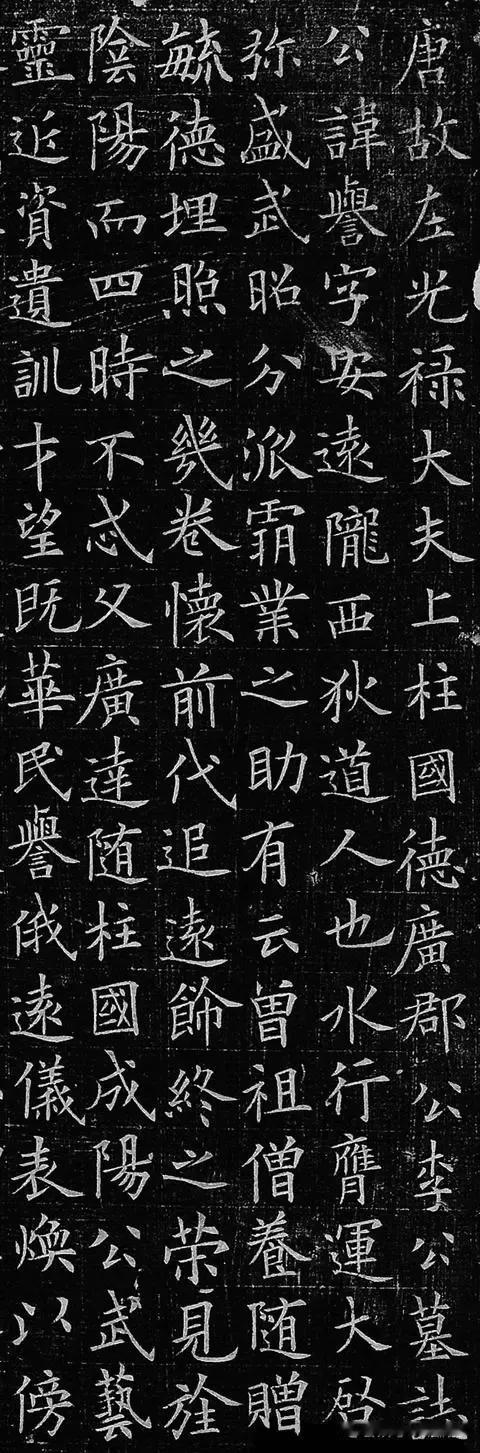 唐故左光禄大夫上柱國德廣郡公李公墓誌
公諱譽字安遠隴西狄道人也水行膺運大啓
弥盛武昭分派霸業之助有云曽祖僧養随贈
毓德埋照之幾卷懷前代追遠飾終之荣見於
陰陽而四時不忒父廣達随柱國成陽公武藝
靈近資遺訓才望既華民譽俄遠儀表焕以傍